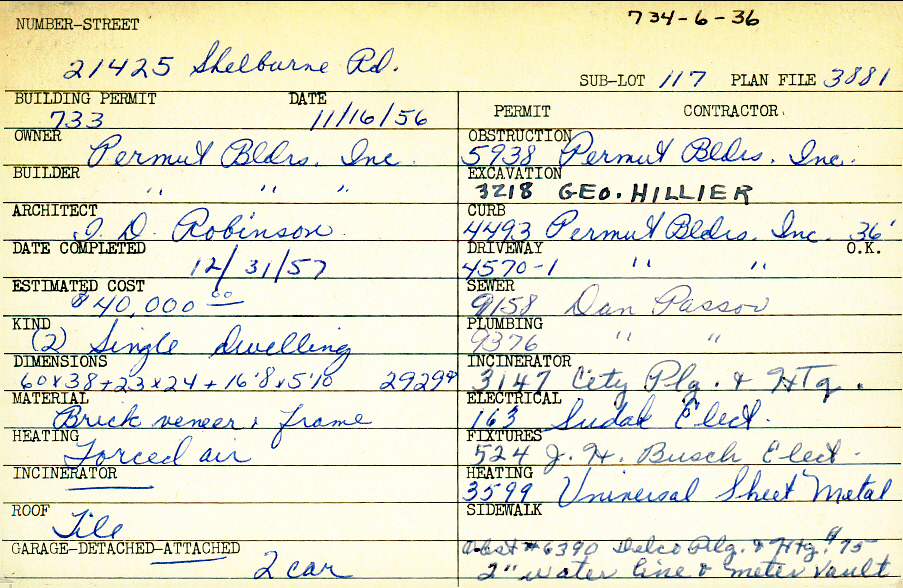 734-6-36
NUMBER-STREET
21425 Shelburne Rd.
SUB-LOT 117 PLAN FILE 3881
BUILDING PERMIT DATE
733 11/16/56
OWNER
Permut Bldrs. Inc.
BUILDER
" " "
ARCHITECT
I. D. Robinson
DATE COMPLETED
12/31/57
ESTIMATED COST
$40,000 00
KIND
(2) Single dwelling
DIMENSIONS
60x38+23x24+16'8x5'10 2929
MATERIAL
Brick veneer, frame
HEATING
Forced air
INCINERATOR
ROOF
Tile
GARAGE-DETACHED-ATTACHED
2 car
PERMIT CONTRACTOR
OBSTRUCTION
5938 Permut Bldrs. Inc.
EXCAVATION
3218 GEO. HILLIER
CURB
4493 Permut Bldrs. Inc. 36'
DRIVEWAY O.K.
4570-1 " "
SEWER
9158 Dan Passov
PLUMBING
9376 " "
INCINERATOR
3147 City Plg. & HTg.
ELECTRICAL
163 Sudak Elect.
FIXTURES
524 J. H. Busch Elect.
HEATING
3599 Universal Sheet Metal
SIDEWALK
Obst #6390 Delco Plg. & Htg. $75
2" water line & meter vault